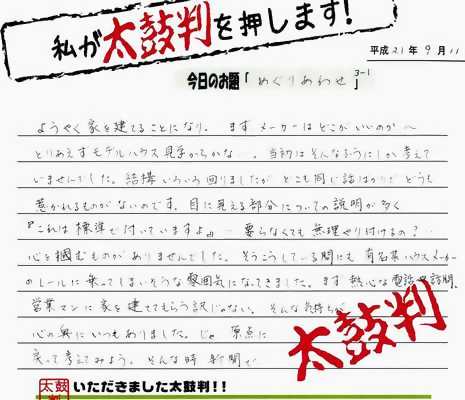 私が太鼓判を押します!
平成21年9月11
今日のお題「めぐりあわせ3-1」
ようやく家を建てることになり。まずメーカーはどこがいいのか〜
とりあえずモデルハウス見学からかな…。当初はそんなふうにしか考えて
いませんでした。結構いろいろ回りましたが どこも同じ話ばかりで どうも
惹かれるものがないのです。目に見える部分についての説明が多く
『これは標準で付いていますよ』… 要らなくても無理やり付けるの?…
心を掴むものがありませんでした。そうこうしている間にも 有名なハウスメーカー
のレールに乗ってしまいそうな雰囲気になってきました。まず 熱心な電話や訪問。
営業マンに家を建ててもらう訳じゃない。そんな気持ちが
心の奥にいつもありました。じゃ 原点に
戻って考えてみよう。そんな時 新聞で
太鼓判
太鼓判
いただきました太鼓判!!